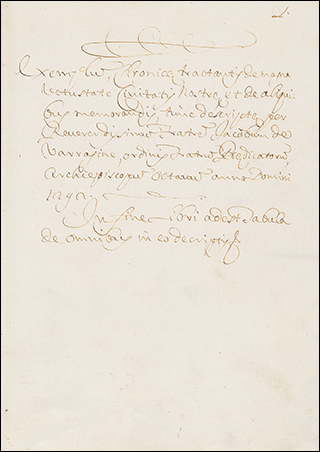 1.
Exemplu Chronicæ tractantis de magna
vetustate Civitatis nostræ, et de aliqui
bus memorandis, a descriptæ per
Reverendissimū Fratrē Jacobum de
Varragine, ordinis Fratrū Predicatorū,
Archiepiscopū Octavū anno Domini
1292
In fine Libri adest Tabula
de omnibus in eo descriptis